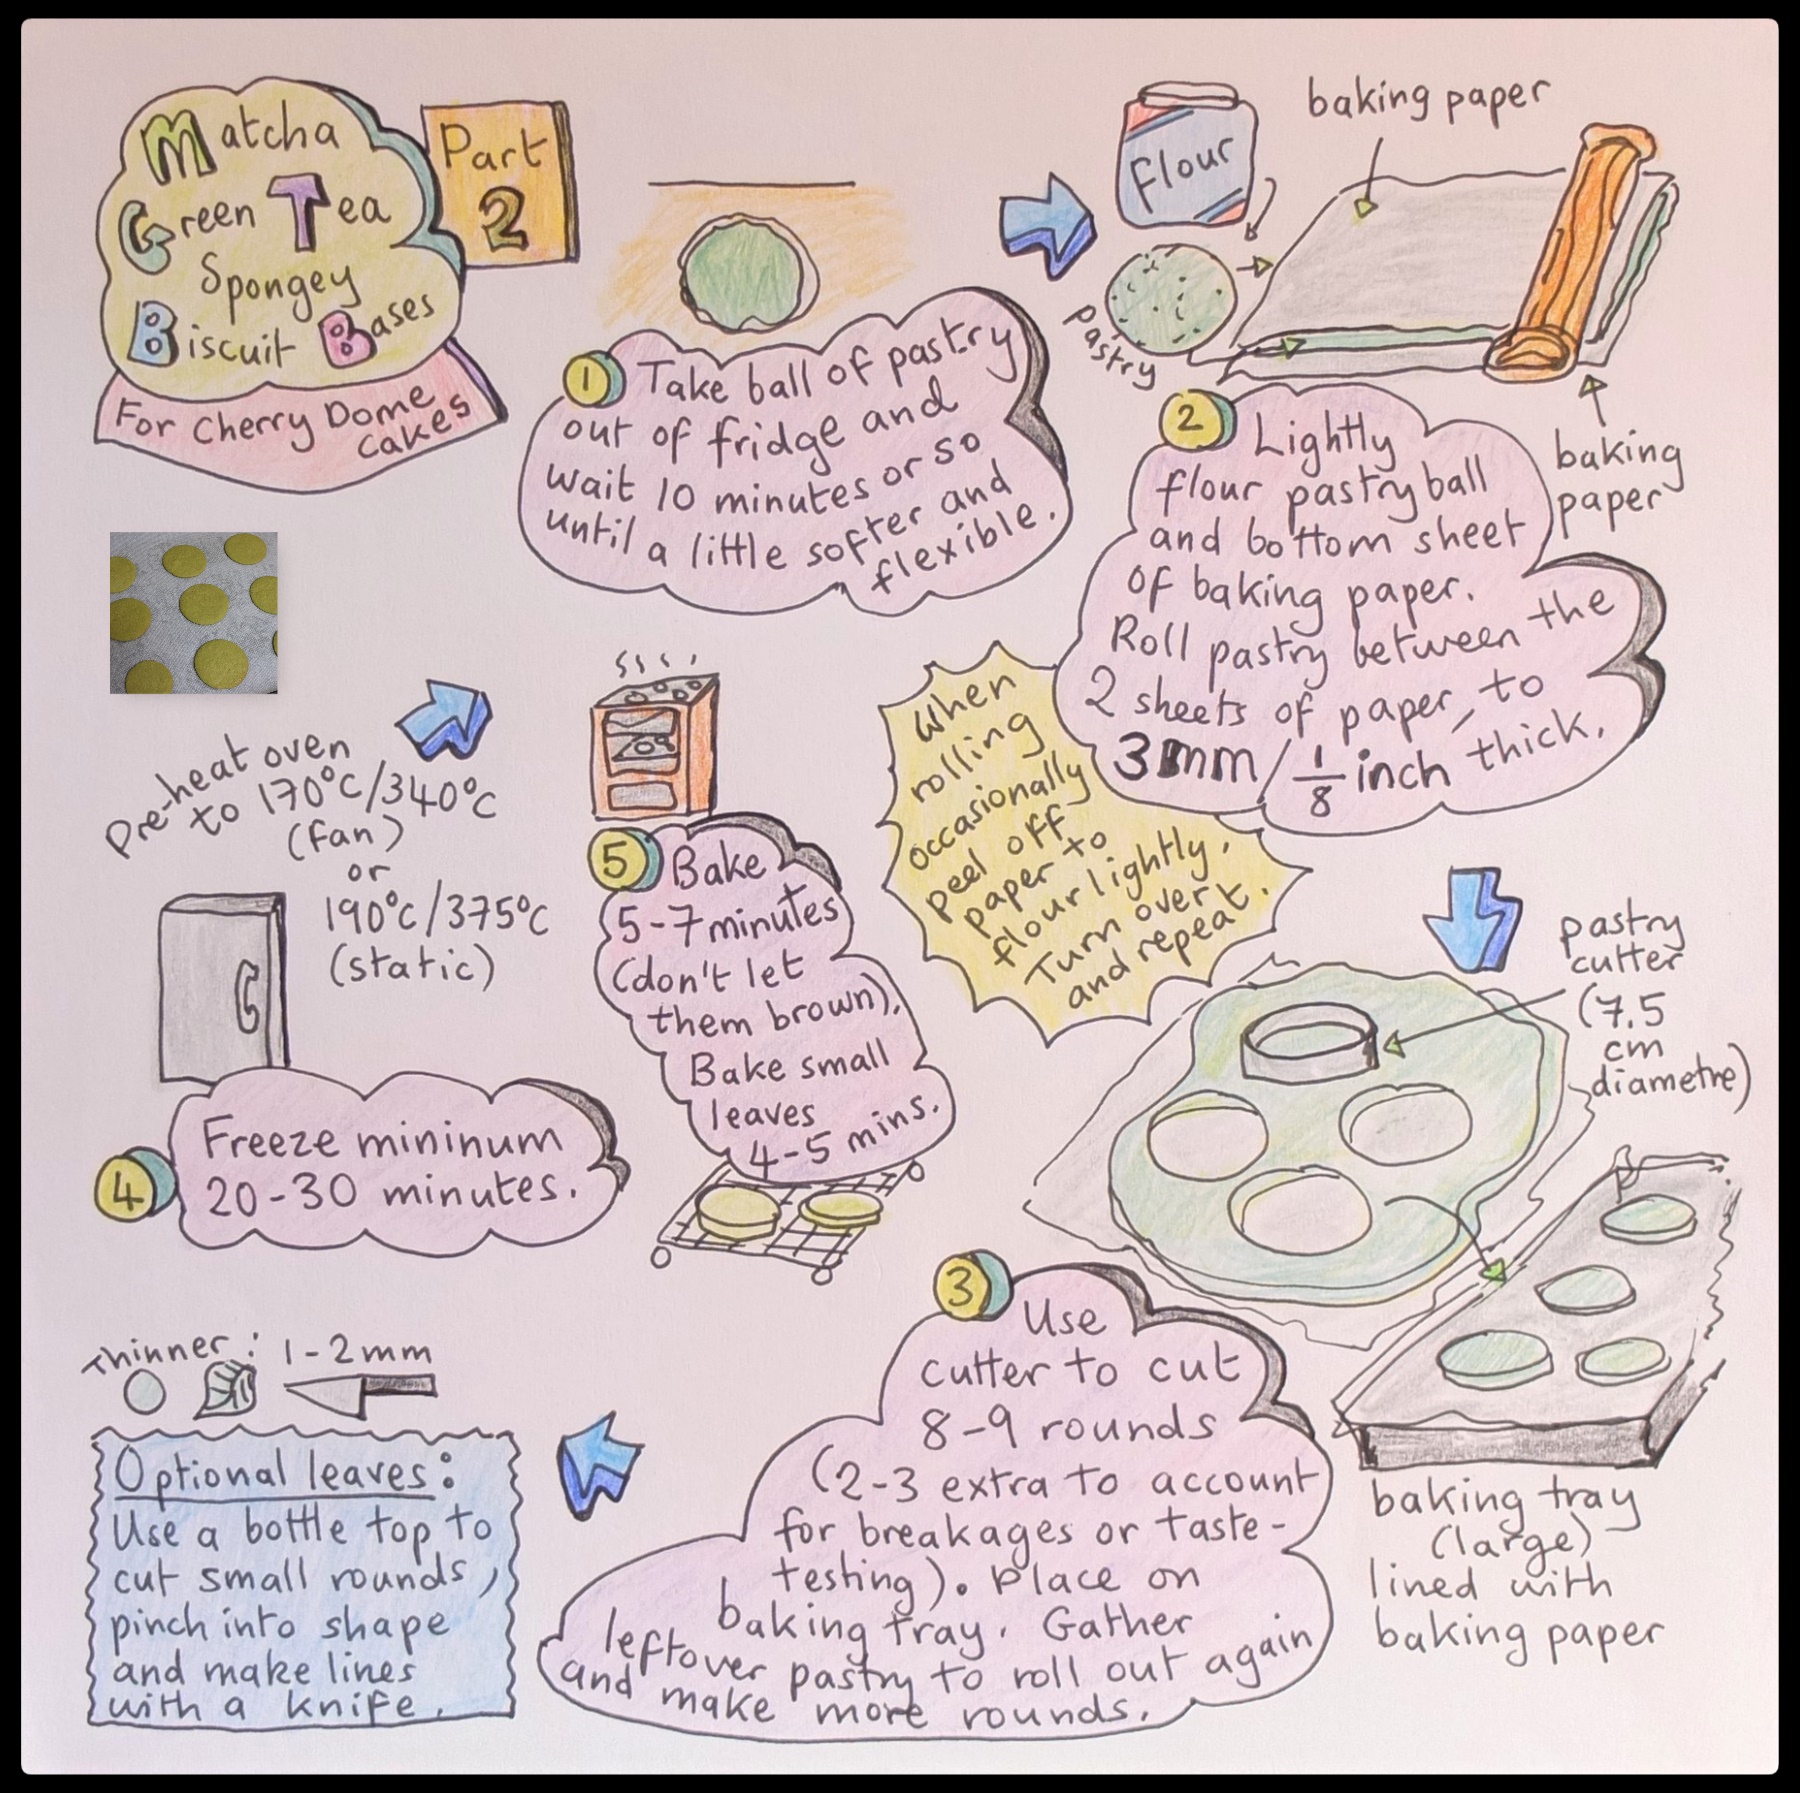 Matcha
Green Tea
Spongey
Biscuit Bases
For Cherry Dome
Cakes
Part
2
1 Take ball of pastry
out of fridge and
wait 10 minutes or so
until a little softer and
flexible.
Flour
pastry
baking paper
baking
paper
2 Lightly
flour pastry ball
and bottom sheet
of baking paper.
Roll pastry between the
2 sheets of paper, to
3mm/1/8 inch thick.
When
rolling
occasionally
peel off
paper to
flour lightly.
Turn over
and repeat.
pastry
cutter
(7.5
cm
diametre)
3 Use
cutter to cut
8-9 rounds
(2-3 extra to account
for breakages or taste-
testing). Place on
baking tray. Gather
leftover pastry to roll out again
and make more rounds.
baking tray
(large)
lined with
baking paper
Thinner: 1-2mm
Optional leaves:
Use a bottle top to
cut small rounds,
pinch into shape
and make lines
with a knife.
4 Freeze mininum
20-30 minutes.
Pre-heat oven
to 170°C/340°C
(fan)
or
190°C/375°C
(static)
5 Bake
5-7 minutes
(don't let
them brown).
Bake small
leaves
4-5 mins.